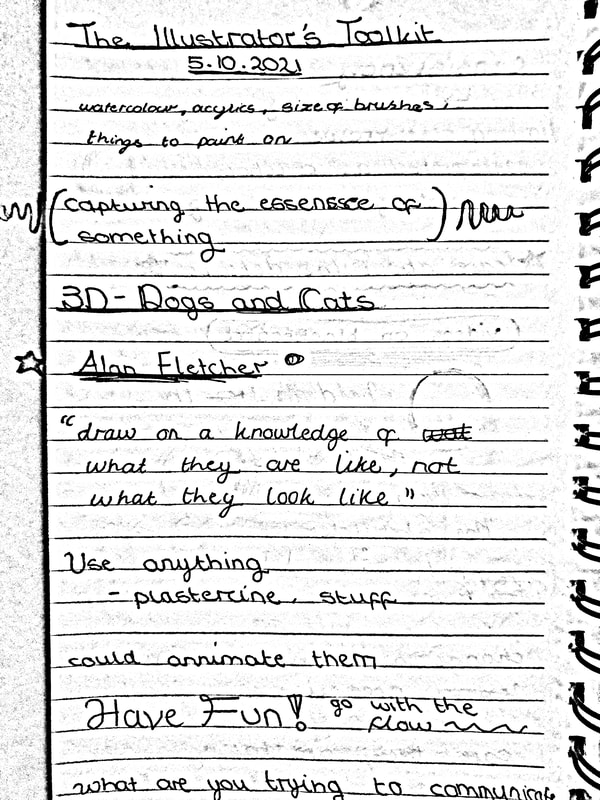 The Illustrator's Toolkit
5.10.2021
watercolour, acylics, size of brushes,
things to paint on
(capturing the essensce of
something)
3D - Dogs and Cats
Alan Fletcher
"draw on a knowledge of wat
what they are like, not
what they look like"
Use anything
- plastercine, stuff
could annimate them
Have Fun! go with the
flow
what are you trying to communicate